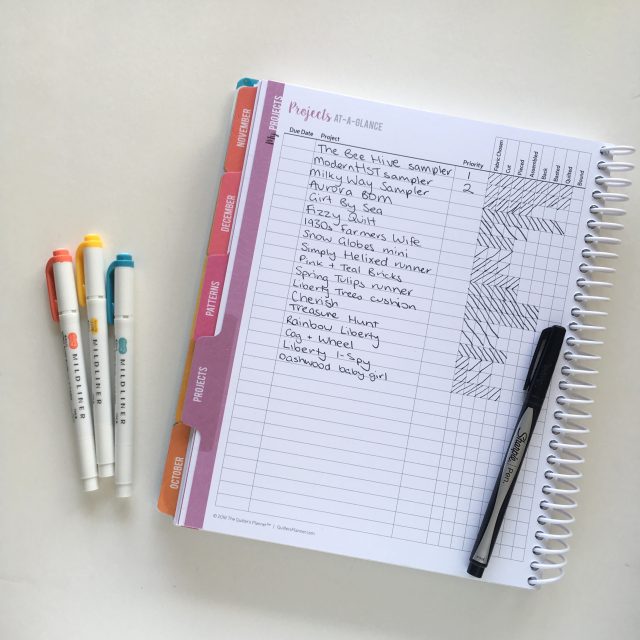 Projects AT-A-GLANCE
My PROJECTS
Due Date Project Priority Fabric Chosen Cut Pieced Assembled Back Basted Quilted Bound
The Bee Hive sampler 1
Modern HST sampler 2
Milky Way Sampler
Aurora BOM
Girt By Sea
Fizzy Quilt
1930s Farmers Wife
Snow Globes mini
Simply Helixed runner
Pink + Teal Bricks
Spring Tulips runner
Liberty Trees cushion
Cherish
Treasure Hunt
Rainbow Liberty
Cog + Wheel
Liberty I-Spy
Dashwood baby girl
NOVEMBER
DECEMBER
PATTERNS
PROJECTS
OCTOBER
© 2018 The Quilter's Planner™ | QuiltersPlanner.com
MILDLINER
MILDLINER
MILDLINER
Sharpie pen